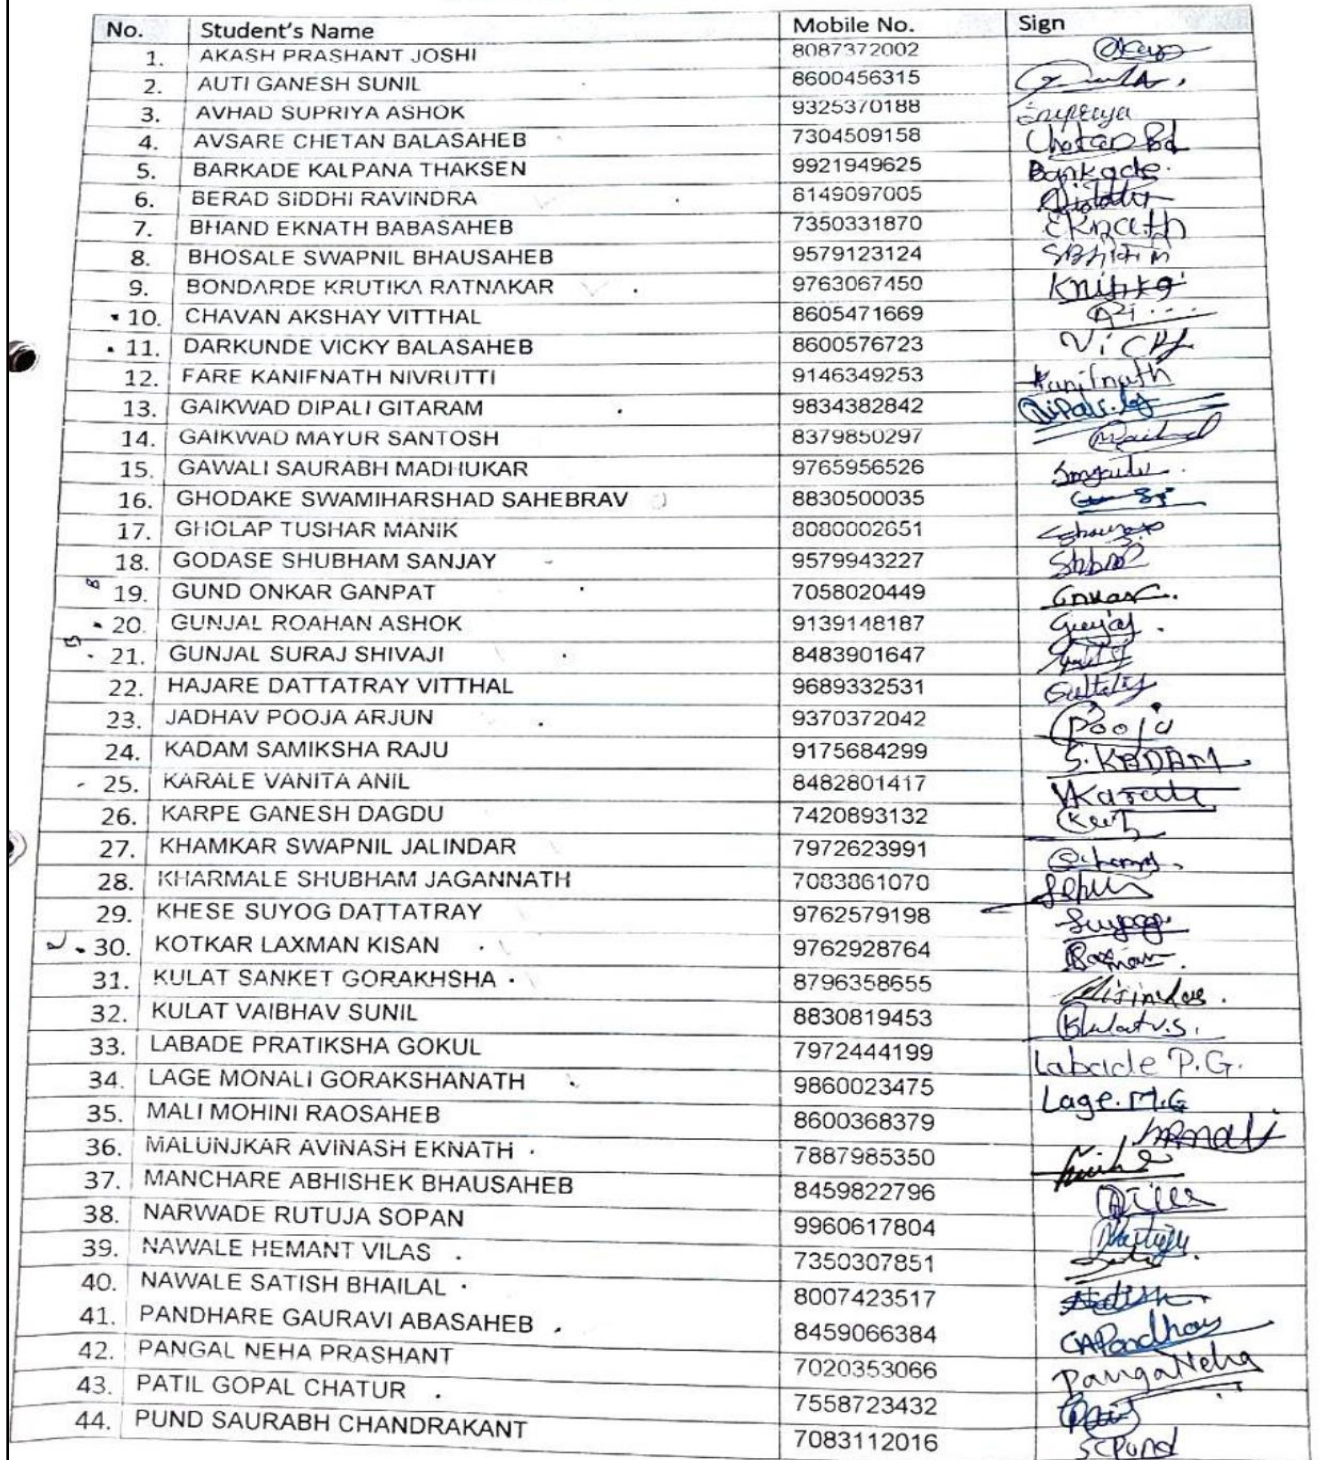 No. Student's Name Mobile No. Sign
1. AKASH PRASHANT JOSHI 8087372002
2. AUTI GANESH SUNIL 8600456315
3. AVHAD SUPRIYA ASHOK 9325370188
4. AVSARE CHETAN BALASAHEB 7304509158
5. BARKADE KALPANA THAKSEN 9921949625 Barkade.
6. BERAD SIDDHI RAVINDRA 8149097005
7. BHAND EKNATH BABASAHEB 7350331870 Eknath
8. BHOSALE SWAPNIL BHAUSAHEB 9579123124
9. BONDARDE KRUTIKA RATNAKAR 9763067450
10. CHAVAN AKSHAY VITTHAL 8605471669
11. DARKUNDE VICKY BALASAHEB 8600576723
12. FARE KANIFNATH NIVRUTTI 9146349253 Kanifnath
13. GAIKWAD DIPALI GITARAM 9834382842
14. GAIKWAD MAYUR SANTOSH 8379850297
15. GAWALI SAURABH MADHUKAR 9765956526
16. GHODAKE SWAMIHARSHAD SAHEBRAV 8830500035
17. GHOLAP TUSHAR MANIK 8080002651
18. GODASE SHUBHAM SANJAY 9579943227
19. GUND ONKAR GANPAT 7058020449
20. GUNJAL ROAHAN ASHOK 9139148187
21. GUNJAL SURAJ SHIVAJI 8483901647
22. HAJARE DATTATRAY VITTHAL 9689332531
23. JADHAV POOJA ARJUN 9370372042 Pooja
24. KADAM SAMIKSHA RAJU 9175684299 S.KADAM
25. KARALE VANITA ANIL 8482801417
26. KARPE GANESH DAGDU 7420893132
27. KHAMKAR SWAPNIL JALINDAR 7972623991
28. KHARMALE SHUBHAM JAGANNATH 7083861070
29. KHESE SUYOG DATTATRAY 9762579198
30. KOTKAR LAXMAN KISAN 9762928764
31. KULAT SANKET GORAKHSHA 8796358655
32. KULAT VAIBHAV SUNIL 8830819453 Kulat v.s.
33. LABADE PRATIKSHA GOKUL 7972444199 Labade P.G.
34. LAGE MONALI GORAKSHANATH 9860023475 Lage.M.G
35. MALI MOHINI RAOSAHEB 8600368379
36. MALUNJKAR AVINASH EKNATH 7887985350
37. MANCHARE ABHISHEK BHAUSAHEB 8459822796
38. NARWADE RUTUJA SOPAN 9960617804
39. NAWALE HEMANT VILAS 7350307851
40. NAWALE SATISH BHAILAL 8007423517
41. PANDHARE GAURAVI ABASAHEB 8459066384
42. PANGAL NEHA PRASHANT 7020353066
43. PATIL GOPAL CHATUR 7558723432
44. PUND SAURABH CHANDRAKANT 7083112016